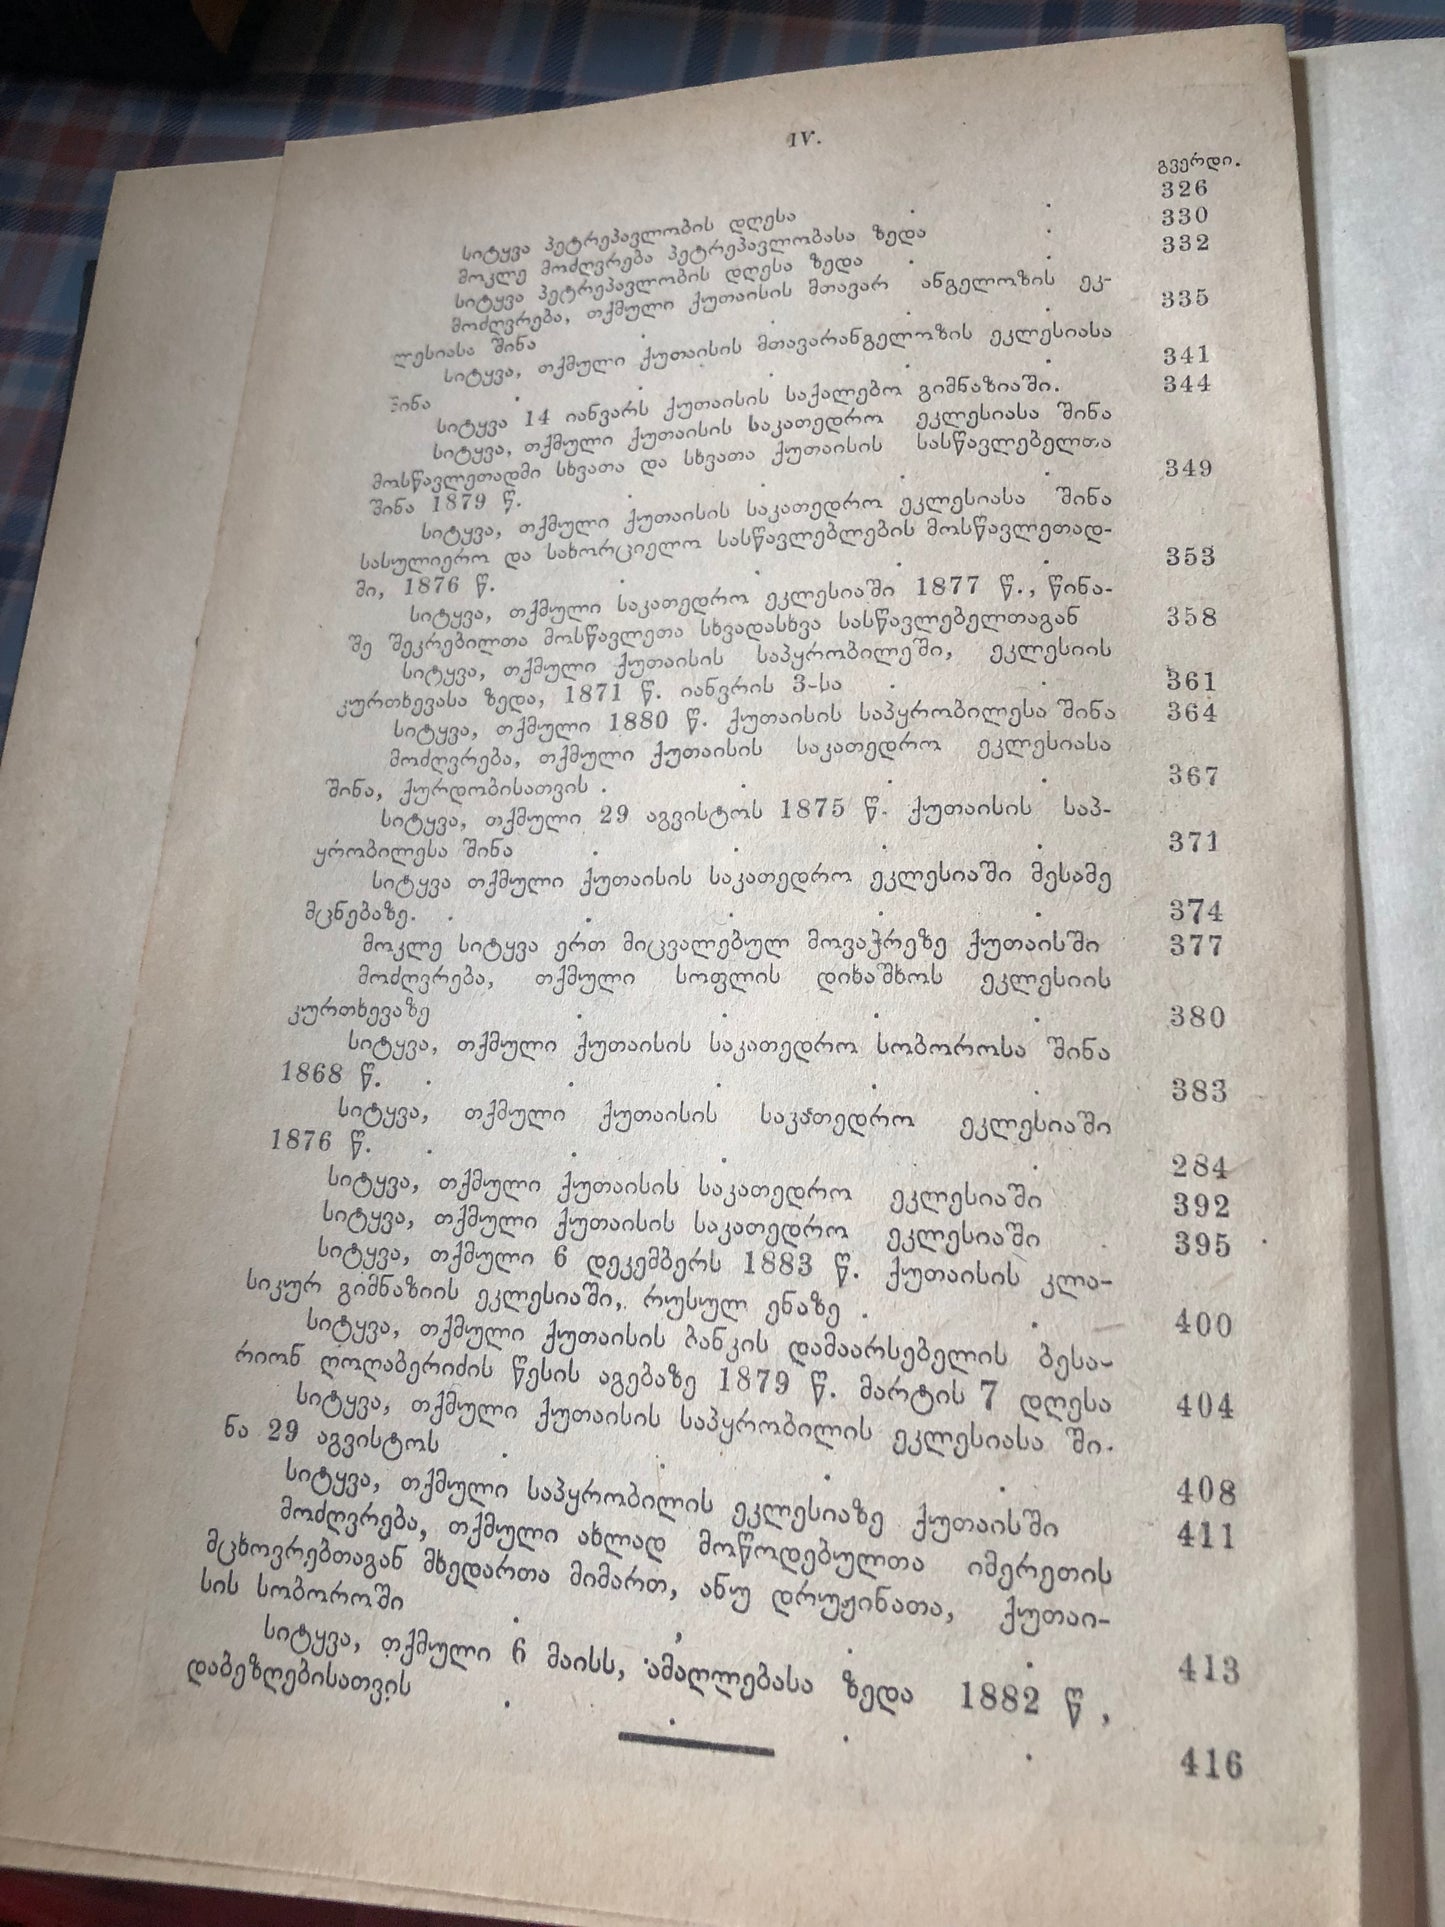 IV.
გვერდი.
სიტყვა პეტრეპავლობის დღესა . . 326
მოკლე მოძღვრება პეტრეპავლობასა ზედა . 330
სიტყვა პეტრეპავლობის დღესა ზედა . . 332
მოძღვრება, თქმული ქუთაისის მთავარ ანგელოზის ეკ-
ლესიასა შინა . . . . 335
სიტყვა, თქმული ქუთაისის მთავარანგელოზის ეკლესიასა
შინა . . . . . 341
სიტყვა 14 იანვარს ქუთაისის საქალებო გიმნაზიაში. 344
სიტყვა, თქმული ქუთაისის საკათედრო ეკლესიასა შინა
მოსწავლეთადმი სხვათა და სხვათა ქუთაისის სასწავლებელთა
შინა 1879 წ. . . . . 349
სიტყვა, თქმული ქუთაისის საკათედრო ეკლესიასა შინა
სასულიერო და სახორციელო სასწავლებლების მოსწავლეთად-
მი, 1876 წ. . . . . 353
სიტყვა, თქმული საკათედრო ეკლესიაში 1877 წ., წინა-
შე შეკრებილთა მოსწავლეთა სხვადასხვა სასწავლებელთაგან 358
სიტყვა, თქმული ქუთაისის საპყრობილეში, ეკლესიის
კურთხევასა ზედა, 1871 წ. იანვრის 3-სა . . 361
სიტყვა, თქმული 1880 წ. ქუთაისის საპყრობილესა შინა 364
მოძღვრება, თქმული ქუთაისის საკათედრო ეკლესიასა
შინა, ქურდობისათვის . . . . 367
სიტყვა, თქმული 29 აგვისტოს 1875 წ. ქუთაისის საპ-
ყრობილესა შინა . . . . 371
სიტყვა თქმული ქუთაისის საკათედრო ეკლესიაში მესამე
მცნებაზე. . . . . . 374
მოკლე სიტყვა ერთ მიცვალებულ მოვაჭრეზე ქუთაისში 377
მოძღვრება, თქმული სოფლის დიხაშხოს ეკლესიის
კურთხევაზე . . . . 380
სიტყვა, თქმული ქუთაისის საკათედრო სობოროსა შინა
1868 წ. . . . . . 383
სიტყვა, თქმული ქუთაისის საკათედრო ეკლესიაში
1876 წ. . . . . 284
სიტყვა, თქმული ქუთაისის საკათედრო ეკლესიაში 392
სიტყვა, თქმული ქუთაისის საკათედრო ეკლესიაში . 395
სიტყვა, თქმული 6 დეკემბერს 1883 წ. ქუთაისის კლა-
სიკურ გიმნაზიის ეკლესიაში, რუსულ ენაზე . . 400
სიტყვა, თქმული ქუთაისის ბანკის დამაარსებელის ბესა-
რიონ ღოღაბერიძის წესის აგებაზე 1879 წ. მარტის 7 დღესა 404
სიტყვა, თქმული ქუთაისის საპყრობილის ეკლესიასა ში.
ნა 29 აგვისტოს . . . . 408
სიტყვა, თქმული საპყრობილის ეკლესიაზე ქუთაისში 411
მოძღვრება, თქმული ახლად მოწოდებულთა იმერეთის
მცხოვრებთაგან მხედართა მიმართ, ანუ დრუჟინათა, ქუთაი-
სის სობოროში . . . . 413
სიტყვა, თქმული 6 მაისს, ამაღლებასა ზედა 1882 წ ,
დაბეზღებისათვის . . . . 416